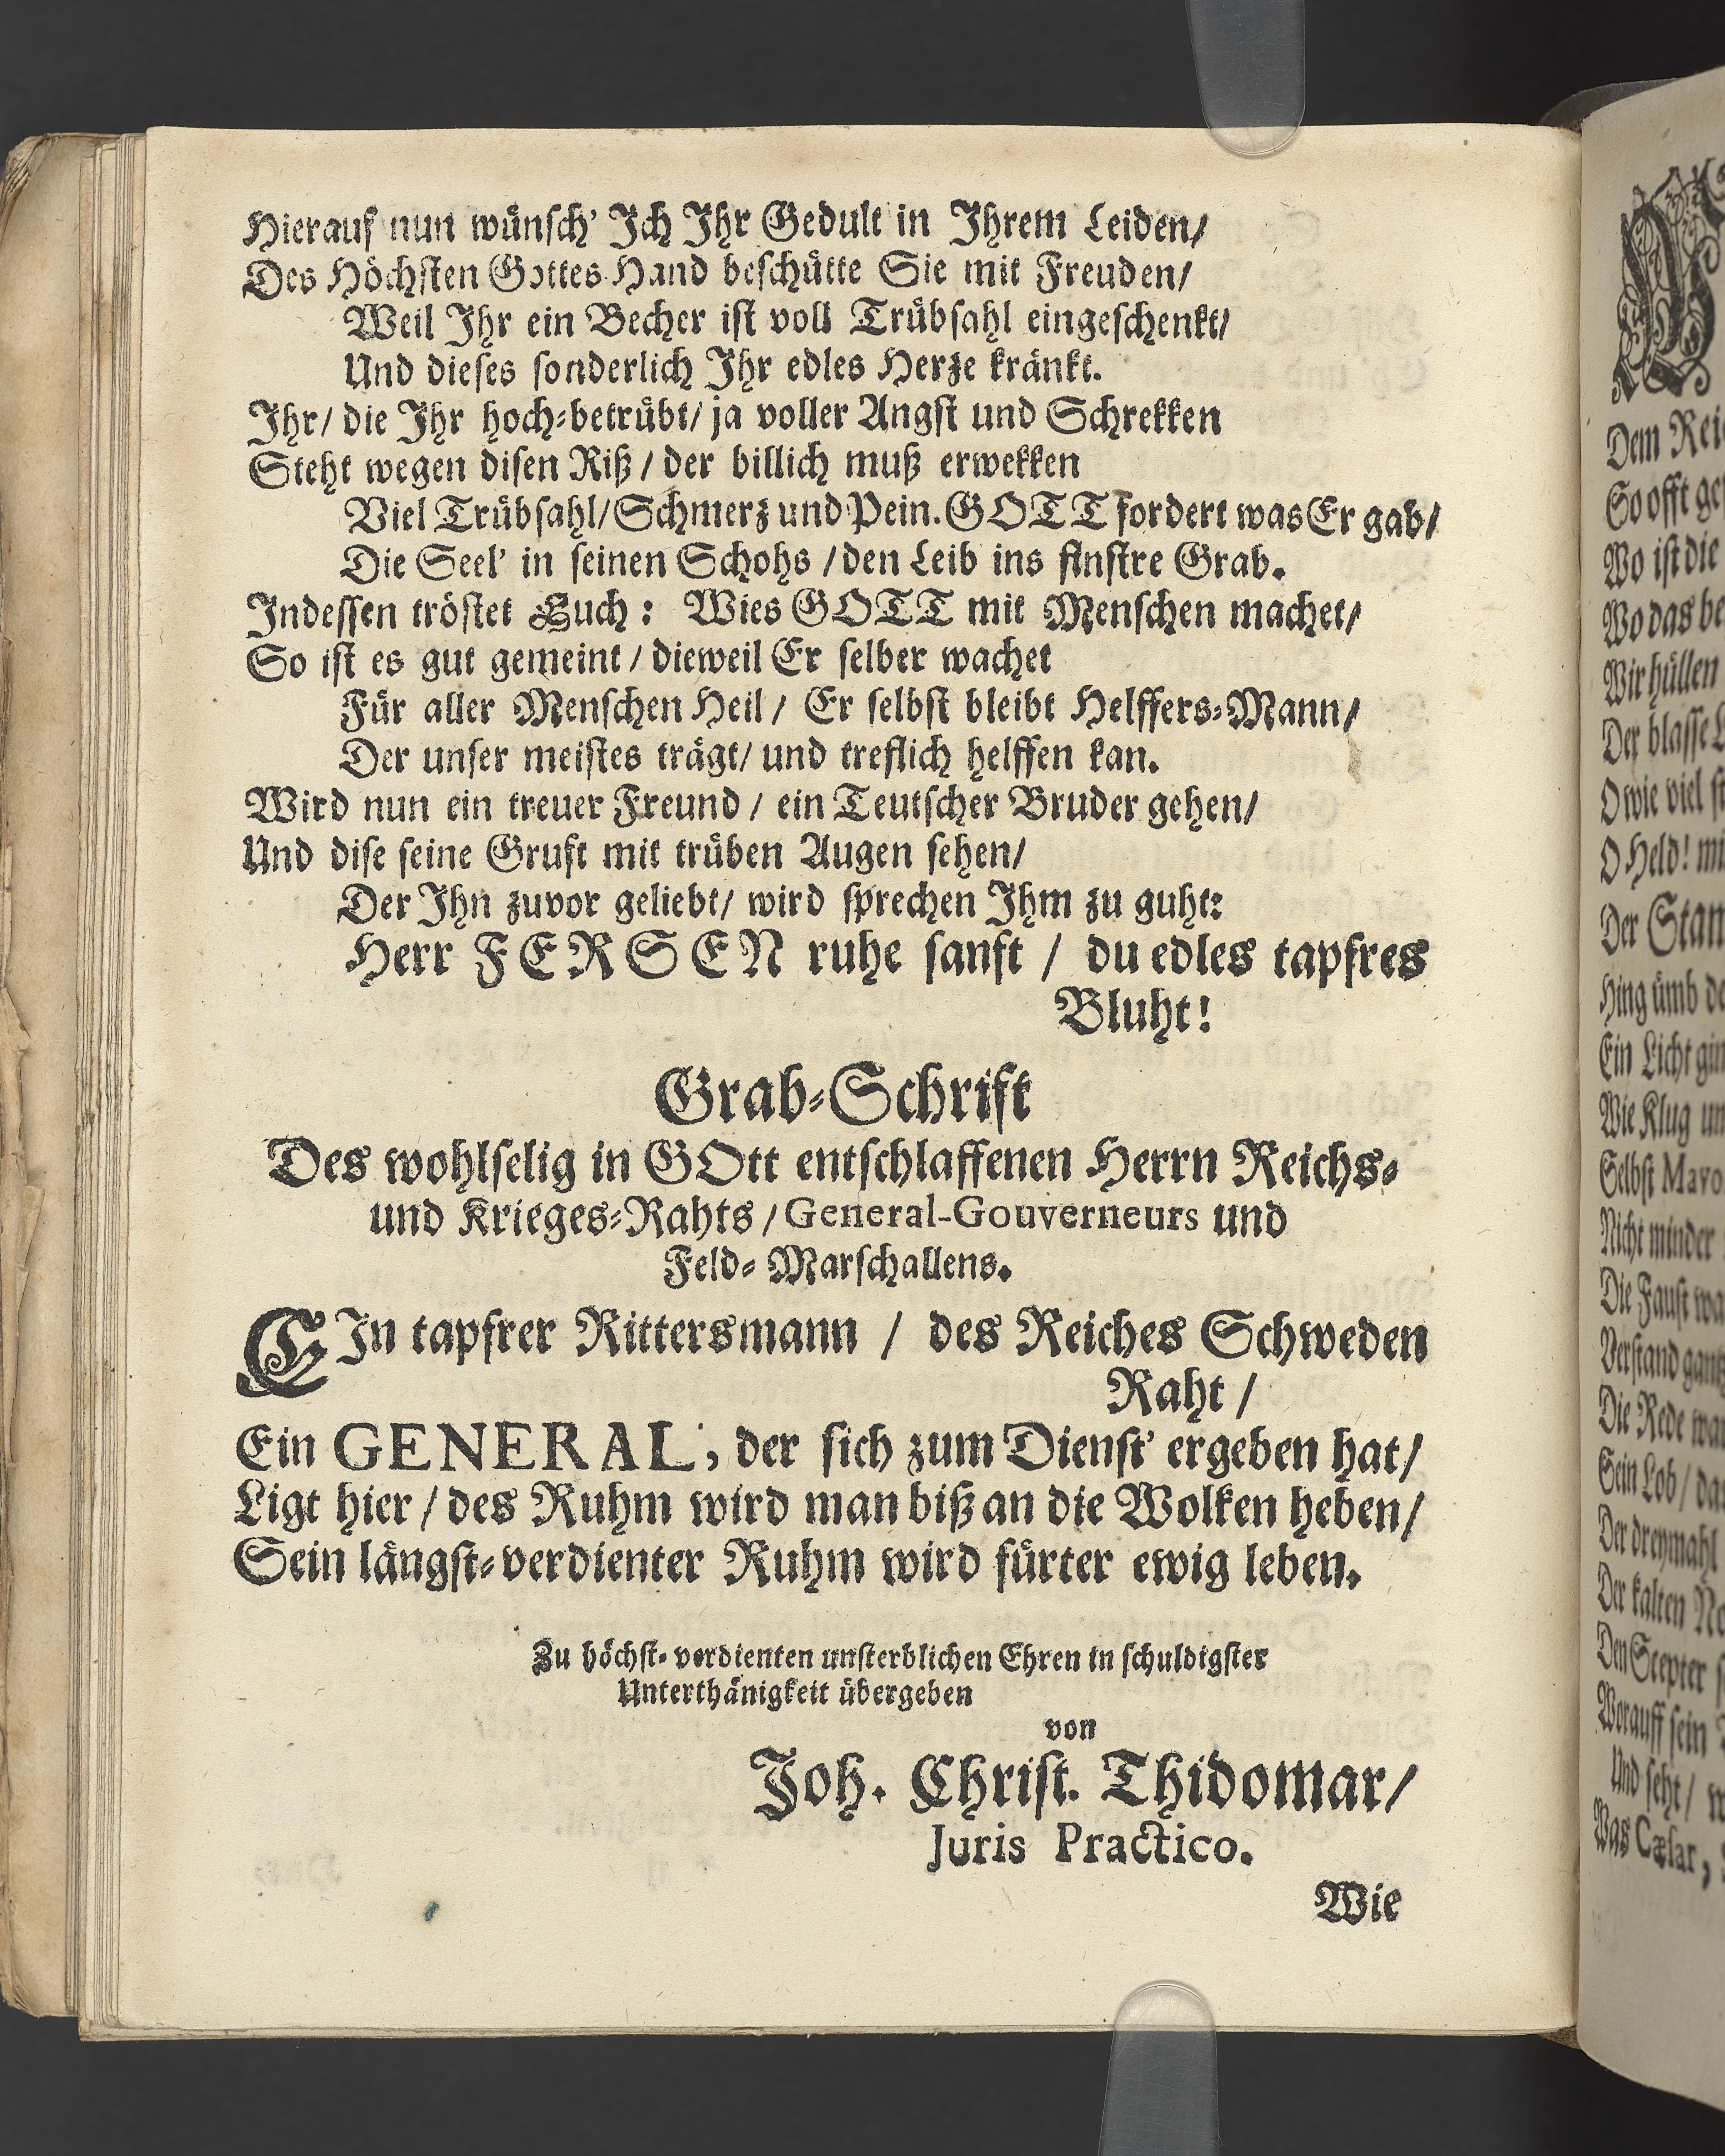 Hierauf nun wünsch' Ich Ihr Gedult in Ihrem Leiden/
Des Höchsten Gottes Hand beschütte Sie mit Freuden/
Weil Ihr ein Becher ist voll Trübsahl eingeschenkt/
Und dieses sonderlich Ihr edles Herze kränkt.
Ihr/ die Ihr hoch-betrübt/ ja voller Angst und Schrekken
Steht wegen disen Riß / der billich muß erwekken
Viel Trübsahl/ Schmerz und Pein. GOTT fordert was Er gab/
Die Seel' in seinen Schohs / den Leib ins finstre Grab.
Indessen tröstet Euch: Wies GOTT mit Menschen machet/
So ist es gut gemeint / dieweil Er selber wachet
Für aller Menschen Heil / Er selbst bleibt Helffers-Mann/
Der unser meistes trägt/ und treflich helffen kan.
Wird nun ein treuer Freund / ein Teutscher Bruder gehen/
Und dise seine Gruft mit trüben Augen sehen/
Der Ihn zuvor geliebt/ wird sprechen Ihm zu guht:
Herr FERSEN ruhe sanft / du edles tapfres
Bluht!
Grab-Schrift
Des wohlselig in GOtt entschlaffenen Herrn Reichs-
und Krieges-Rahts / General-Gouverneurs und
Feld-Marschallens.
EIn tapfrer Rittersmann / des Reiches Schweden
Raht /
Ein GENERAL, der sich zum Dienst' ergeben hat/
Ligt hier / des Ruhm wird man biß an die Wolken heben/
Sein längst-verdienter Ruhm wird fürter ewig leben.
Zu höchst-verdienten unsterblichen Ehren in schuldigster
Unterthänigkeit übergeben
von
Joh. Christ. Thidomar/
Juris Practico.
Wie
Dem
So offt
Wo ist die
Wo das
Wir hüllen
Der blasse
O wie viel
O Held!
Der
Hing ümb
Ein Licht
Wie Klug
Selbst
Nicht minder
Die Faust
Verstand
Die Rede
Sein Lob /
Der dreymahl
Der kalten
Den Scepter
Worauff sein
Und seht /
Was Cæsar,